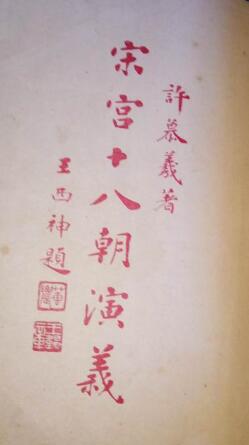 許慕羲著
宋宫十八朝演義
王西神題